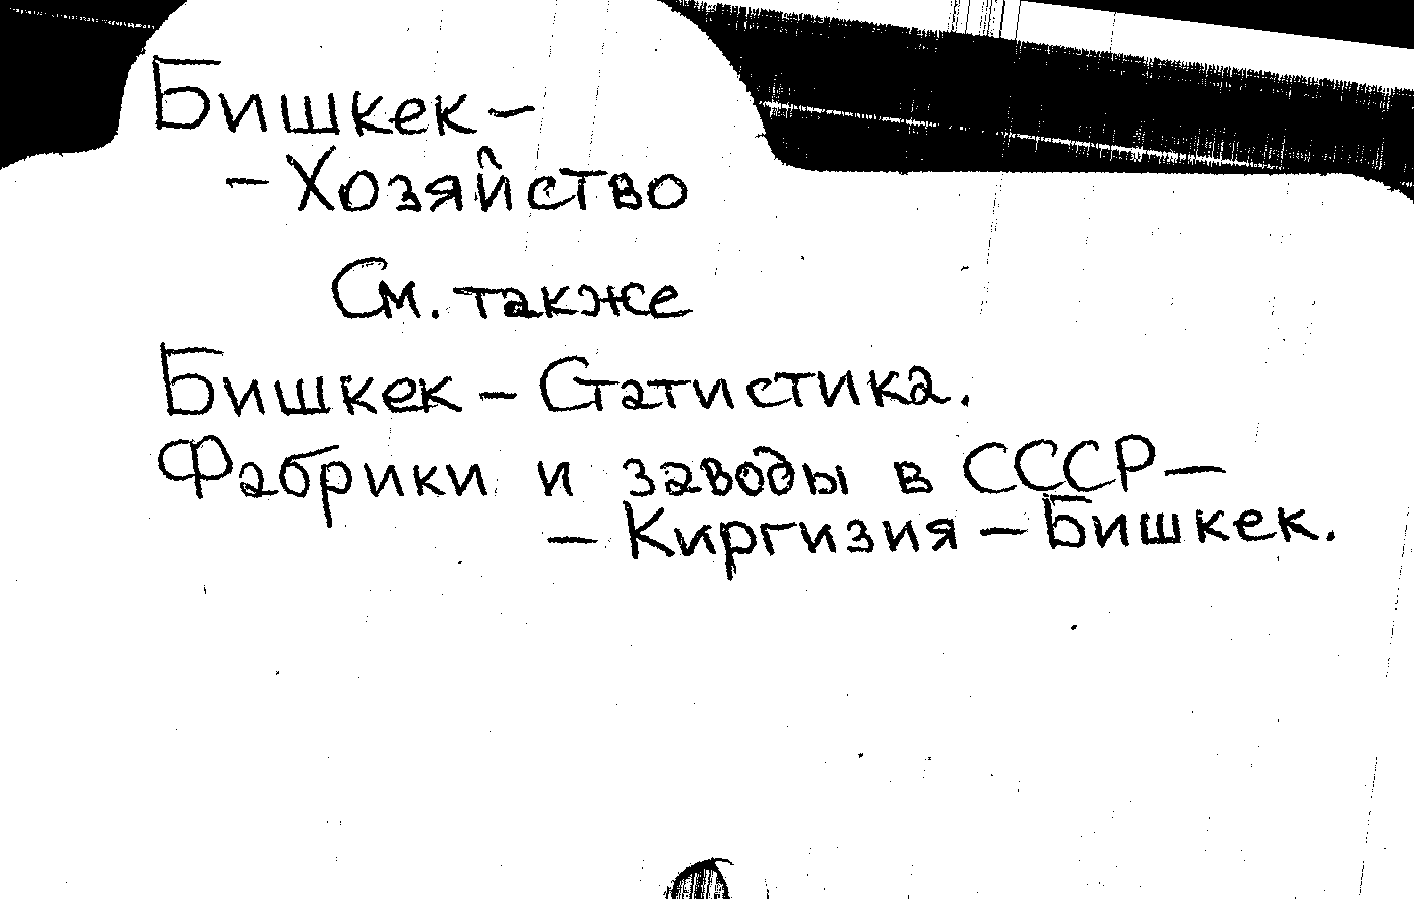 Бишкек –
– Хозяйство
См. также
Бишкек – Статистика.
Фабрики и заводы в СССР –
– Киргизия – Бишкек.